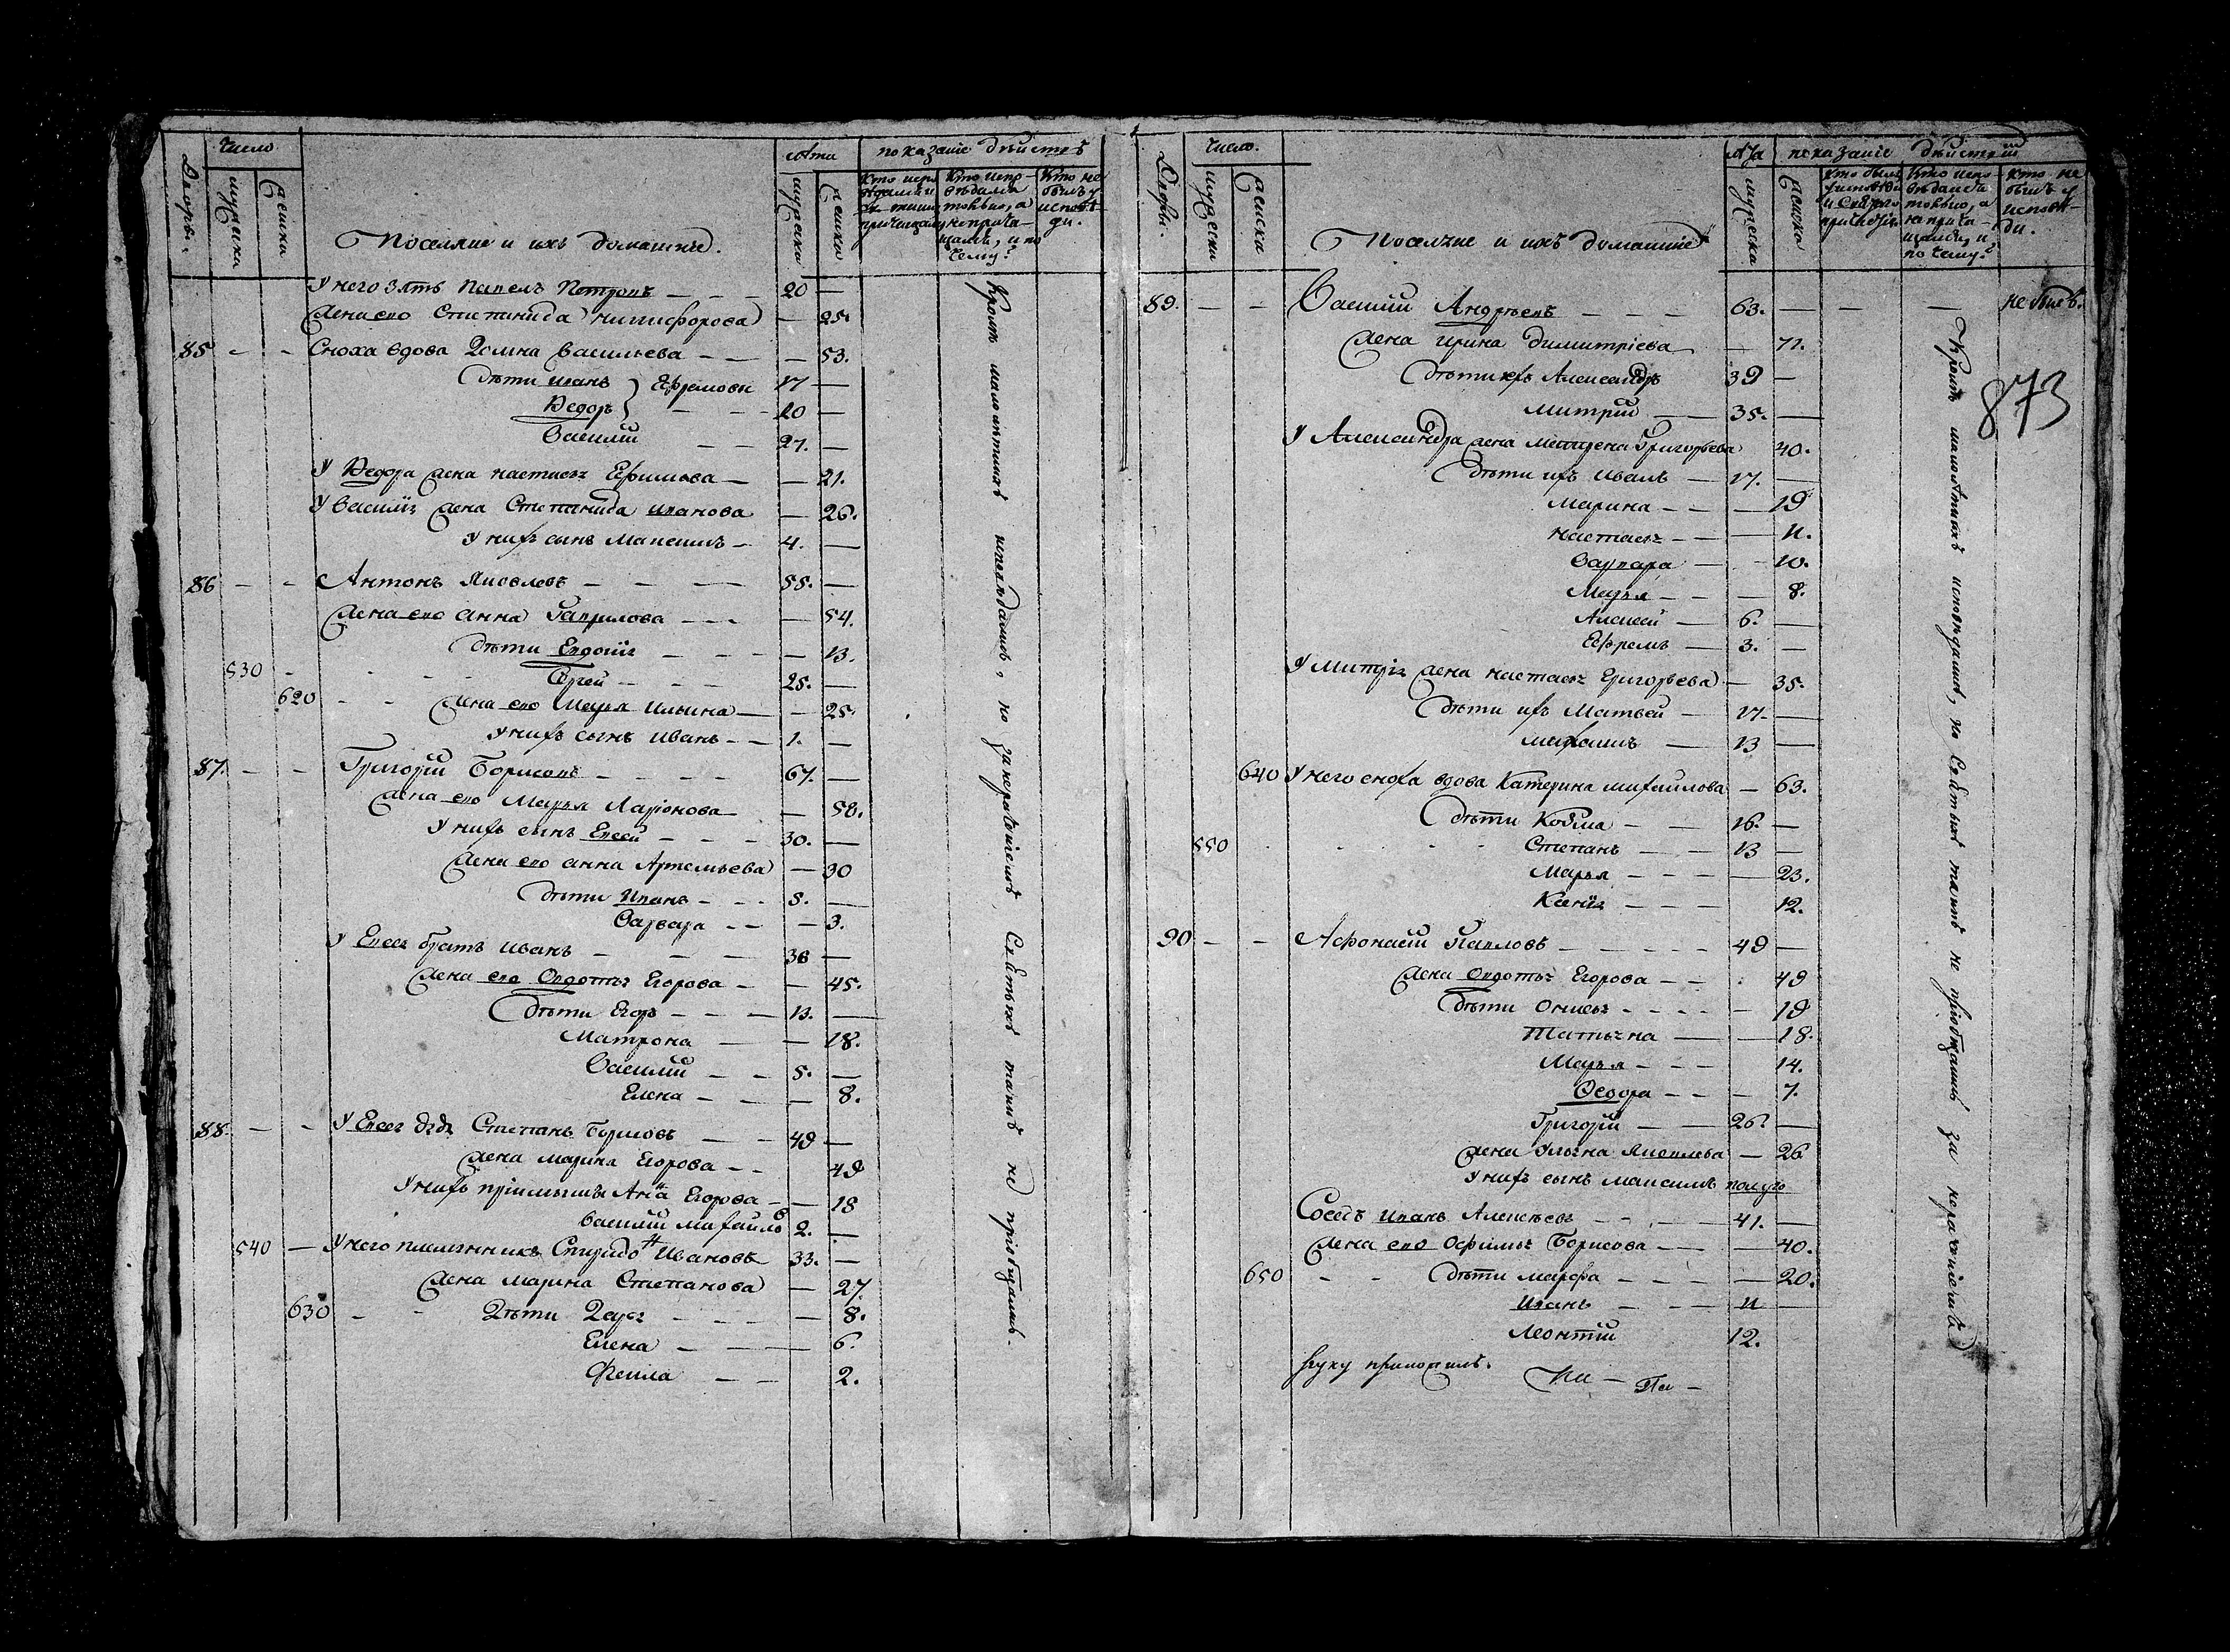 Дворы.
число
мужеска
женска
Поселяне и ихъ домашнее.
лѣта
мужеска
женска
показаніе дѣйствъ
Кто не былъ у исповѣди.
У него зять Павелъ Петровъ — — — 20 —
Жена его Степанида Никифорова — 25.
85 - - Сноха вдова Домна Васильева — — — 53.
Дѣти Иванъ } Ефремовы 17 —
Ѳедоръ } — - - 20 —
Василій — — 27. —
У Ѳедора жена Настасья Ефимова — — 21.
У Василія жена Степанида Иванова — 26.
У нихъ сынъ Максимъ — 4. —
86 - - Антонъ Яковлевъ — — — 55. —
Жена его Анна Гаврилова - - - — 54.
Дѣти Евдокія — — — — 13.
530 - - - - - — — 25. —
620 - - Жена его Марья Ильина — — 25.
У нихъ сынъ Иванъ - - 1. —
87. - - Григорій Борисовъ - — — — 67. —
Жена его Марья Ларіонова — — 58.
У нихъ сынъ Евсей — — — 30. —
Жена его Анна Артемьева — 30
Дѣти Иванъ - - - 5. —
Варвара - - — 3.
У Евсея братъ Иванъ — — — 38 —
Жена его Овдотья Егорова - — 45.
Дѣти Егоръ - - — 13. —
Матрона — — 18.
Василій — — 5. —
Елена — — — 8.
88. — - У Евсея дядя Степанъ Борисовъ — — 49 —
Жена Марина Егорова - - 49
У нихъ пріимышъ Анна Егорова - — 18
Василій Михайловъ 2. —
540 — У него племянникъ Спиридонъ Ивановъ 33. —
Жена Марина Степанова — 27.
630 - - Дѣти Дарья — — — — 8.
Елена — — — 6.
Фекла — — 2.
Кромѣ малолѣтныхъ исповѣдались, но за нераченіемъ Святыхъ таинъ не пріобщались.
Дворы.
число.
мужеска
женска
Поселяне и ихъ домашніе
лѣта
мужеска
женска
показаніе дѣйствій
Кто былъ у исповѣди и Святаго причастія
Кто исповѣдался токмо, а не причащался, и по чему?
Кто не былъ у исповѣди.
873
89. — - Василій Андреевъ — — — 63. — — — не былъ.
Жена Ирина Димитріева — 71.
Дѣти ихъ Александръ 39 —
Митрій — 35. —
У Александра жена Григорьева 40.
Дѣти ихъ Иванъ — 17. —
Марина - - — 19
Настасья - - — 11.
Варвара — - 10.
Марья - - — 8.
Алексей — 6. —
Ефремъ — 3. —
У Митрія жена Настасья Григорьева — 35.
Дѣти ихъ Матвей — 17. —
Михаилъ — 13 —
640 У него сноха вдова Катерина Михайлова — 63.
Дѣти Козма — — 16. —
550 - - - - Степанъ — — 13 —
Марья — — — 23.
Ксенія — — — 12.
90 — - Афонасій Павловъ — — — — 49 —
Жена Овдотья Егорова — - . 49
Дѣти - - - - — 19
Татьяна — — 18.
Марья — — - 14.
Ѳедора - - — 7.
Григорій — — 26. —
Жена Ульяна Яковлева — 26
У нихъ сынъ Максимъ полуго
Соседъ Иванъ Алексеевъ — — — 41. —
Жена его Офимья Борисова — — 40.
650 - - Дѣти Марфа — — — — 20.
Иванъ — — — 11 —
Леонтій 12.
руку приложилъ.
Кромѣ малолѣтныхъ исповѣдались, но Святыхъ таинъ не пріобщались за нераченіемъ